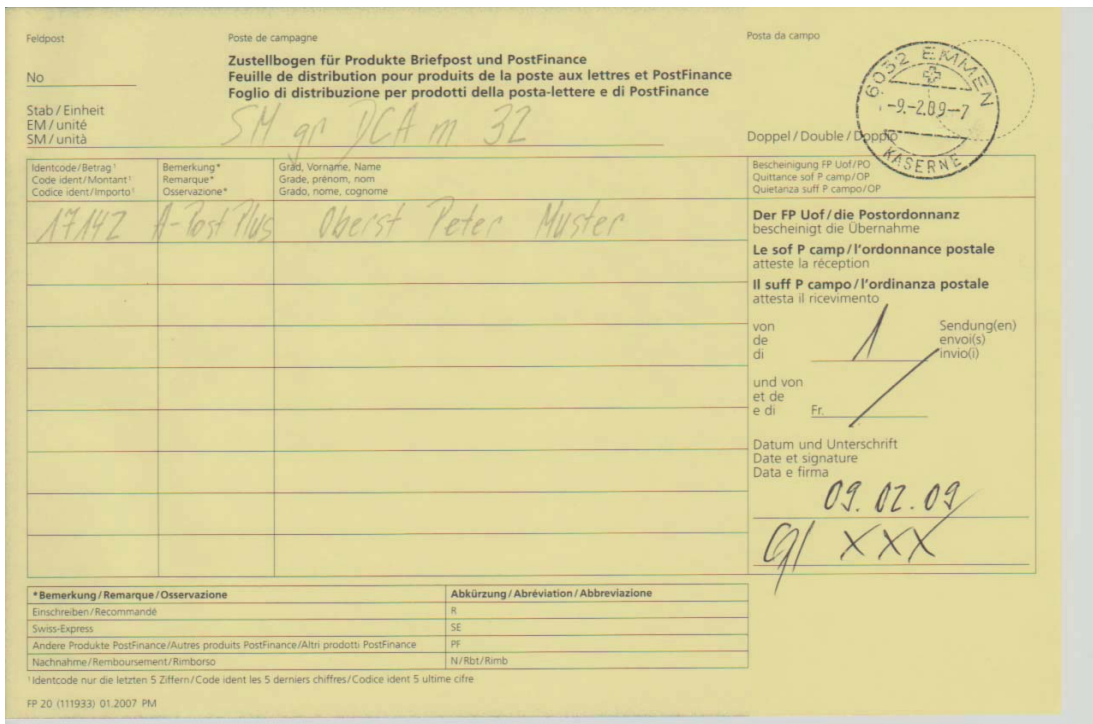 Feldpost
Poste de campagne
Posta da campo
Zustellbogen für Produkte Briefpost und PostFinance
Feuille de distribution pour produits de la poste aux lettres et PostFinance
Foglio di distribuzione per prodotti della posta-lettere e di PostFinance
No
Stab / Einheit
EM / unité
SM / unità
SM gr DCA m 32
Doppel / Double / Doppio
6032 EMMEN
-9.-2.09-7
KASERNE
Identcode/Betrag¹
Code ident/Montant¹
Codice ident/Importo¹
Bemerkung*
Remarque*
Osservazione*
Grad, Vorname, Name
Grade, prénom, nom
Grado, nome, cognome
Bescheinigung FP Uof/PO
Quittance sof P camp/OP
Quietanza suff P campo/OP
17142 A-Post Plus Oberst Peter Muster
Der FP Uof / die Postordonnanz
bescheinigt die Übernahme
Le sof P camp / l'ordonnance postale
atteste la réception
Il suff P campo / l'ordinanza postale
attesta il ricevimento
von
de
di
1
Sendung(en)
envoi(s)
invio(i)
und von
et de
e di
Fr.
Datum und Unterschrift
Date et signature
Data e firma
09.02.09
XXX
*Bemerkung / Remarque / Osservazione
Abkürzung / Abréviation / Abbreviazione
Einschreiben / Recommandé
R
Swiss-Express
SE
Andere Produkte PostFinance/Autres produits PostFinance/Altri prodotti PostFinance
PF
Nachnahme/Remboursement/Rimborso
N/Rbt/Rimb
¹Identcode nur die letzten 5 Ziffern/Code ident les 5 derniers chiffres/Codice ident 5 ultime cifre
FP 20 (111933) 01.2007 PM